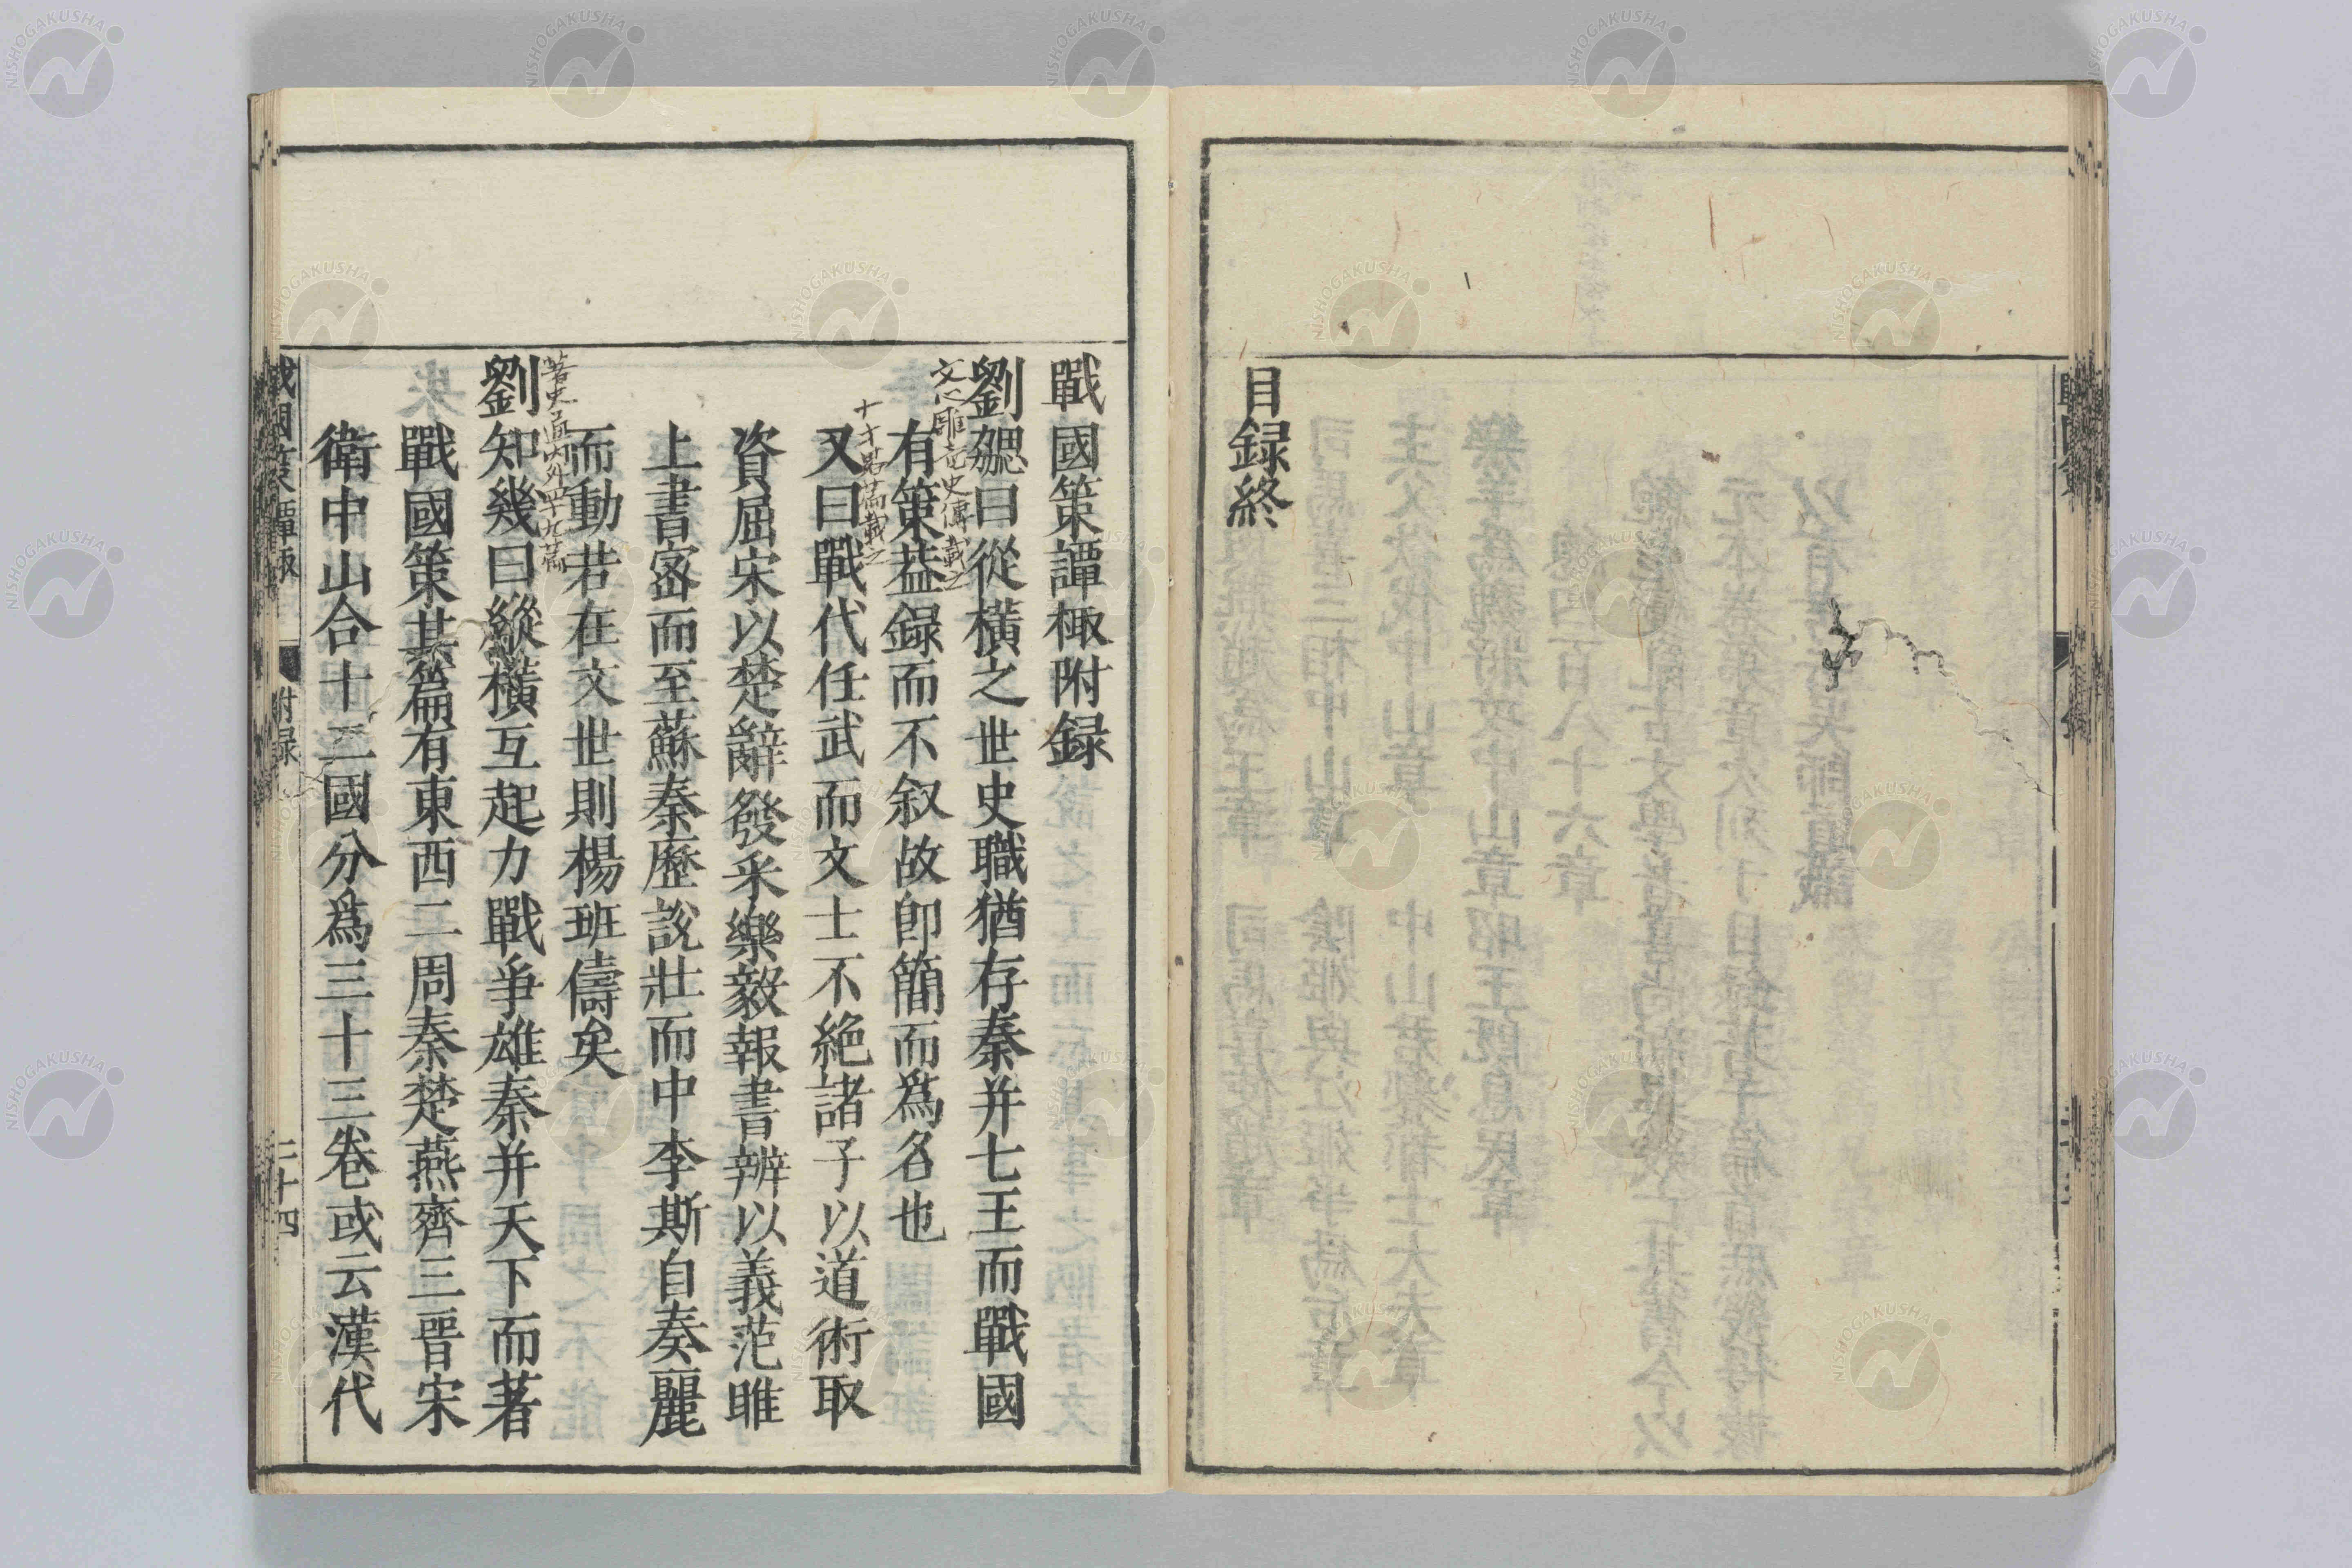 目録終
戰國策譚棷附録
劉勰曰從橫之世史職猶存秦并七王而戰國
文心雕龍史傳載之
有策葢録而不叙故卽簡而爲名也
又曰戰代任武而文士不絶諸子以道術取
資屈宋以楚辭發采樂毅報書辨以義范雎
上書密而至蘇秦歷說壯而中李斯自奏麗
而動若在文世則楊班儔矣
著史通内外四十九篇
劉知幾曰縱橫互起力戰爭雄秦并天下而著
戰國策其篇有東西二周秦楚燕齊三晉宋
衛中山合十二國分爲三十三卷或云漢代
戰國策譚棷
附録
二十四
NISHOGAKUSHA